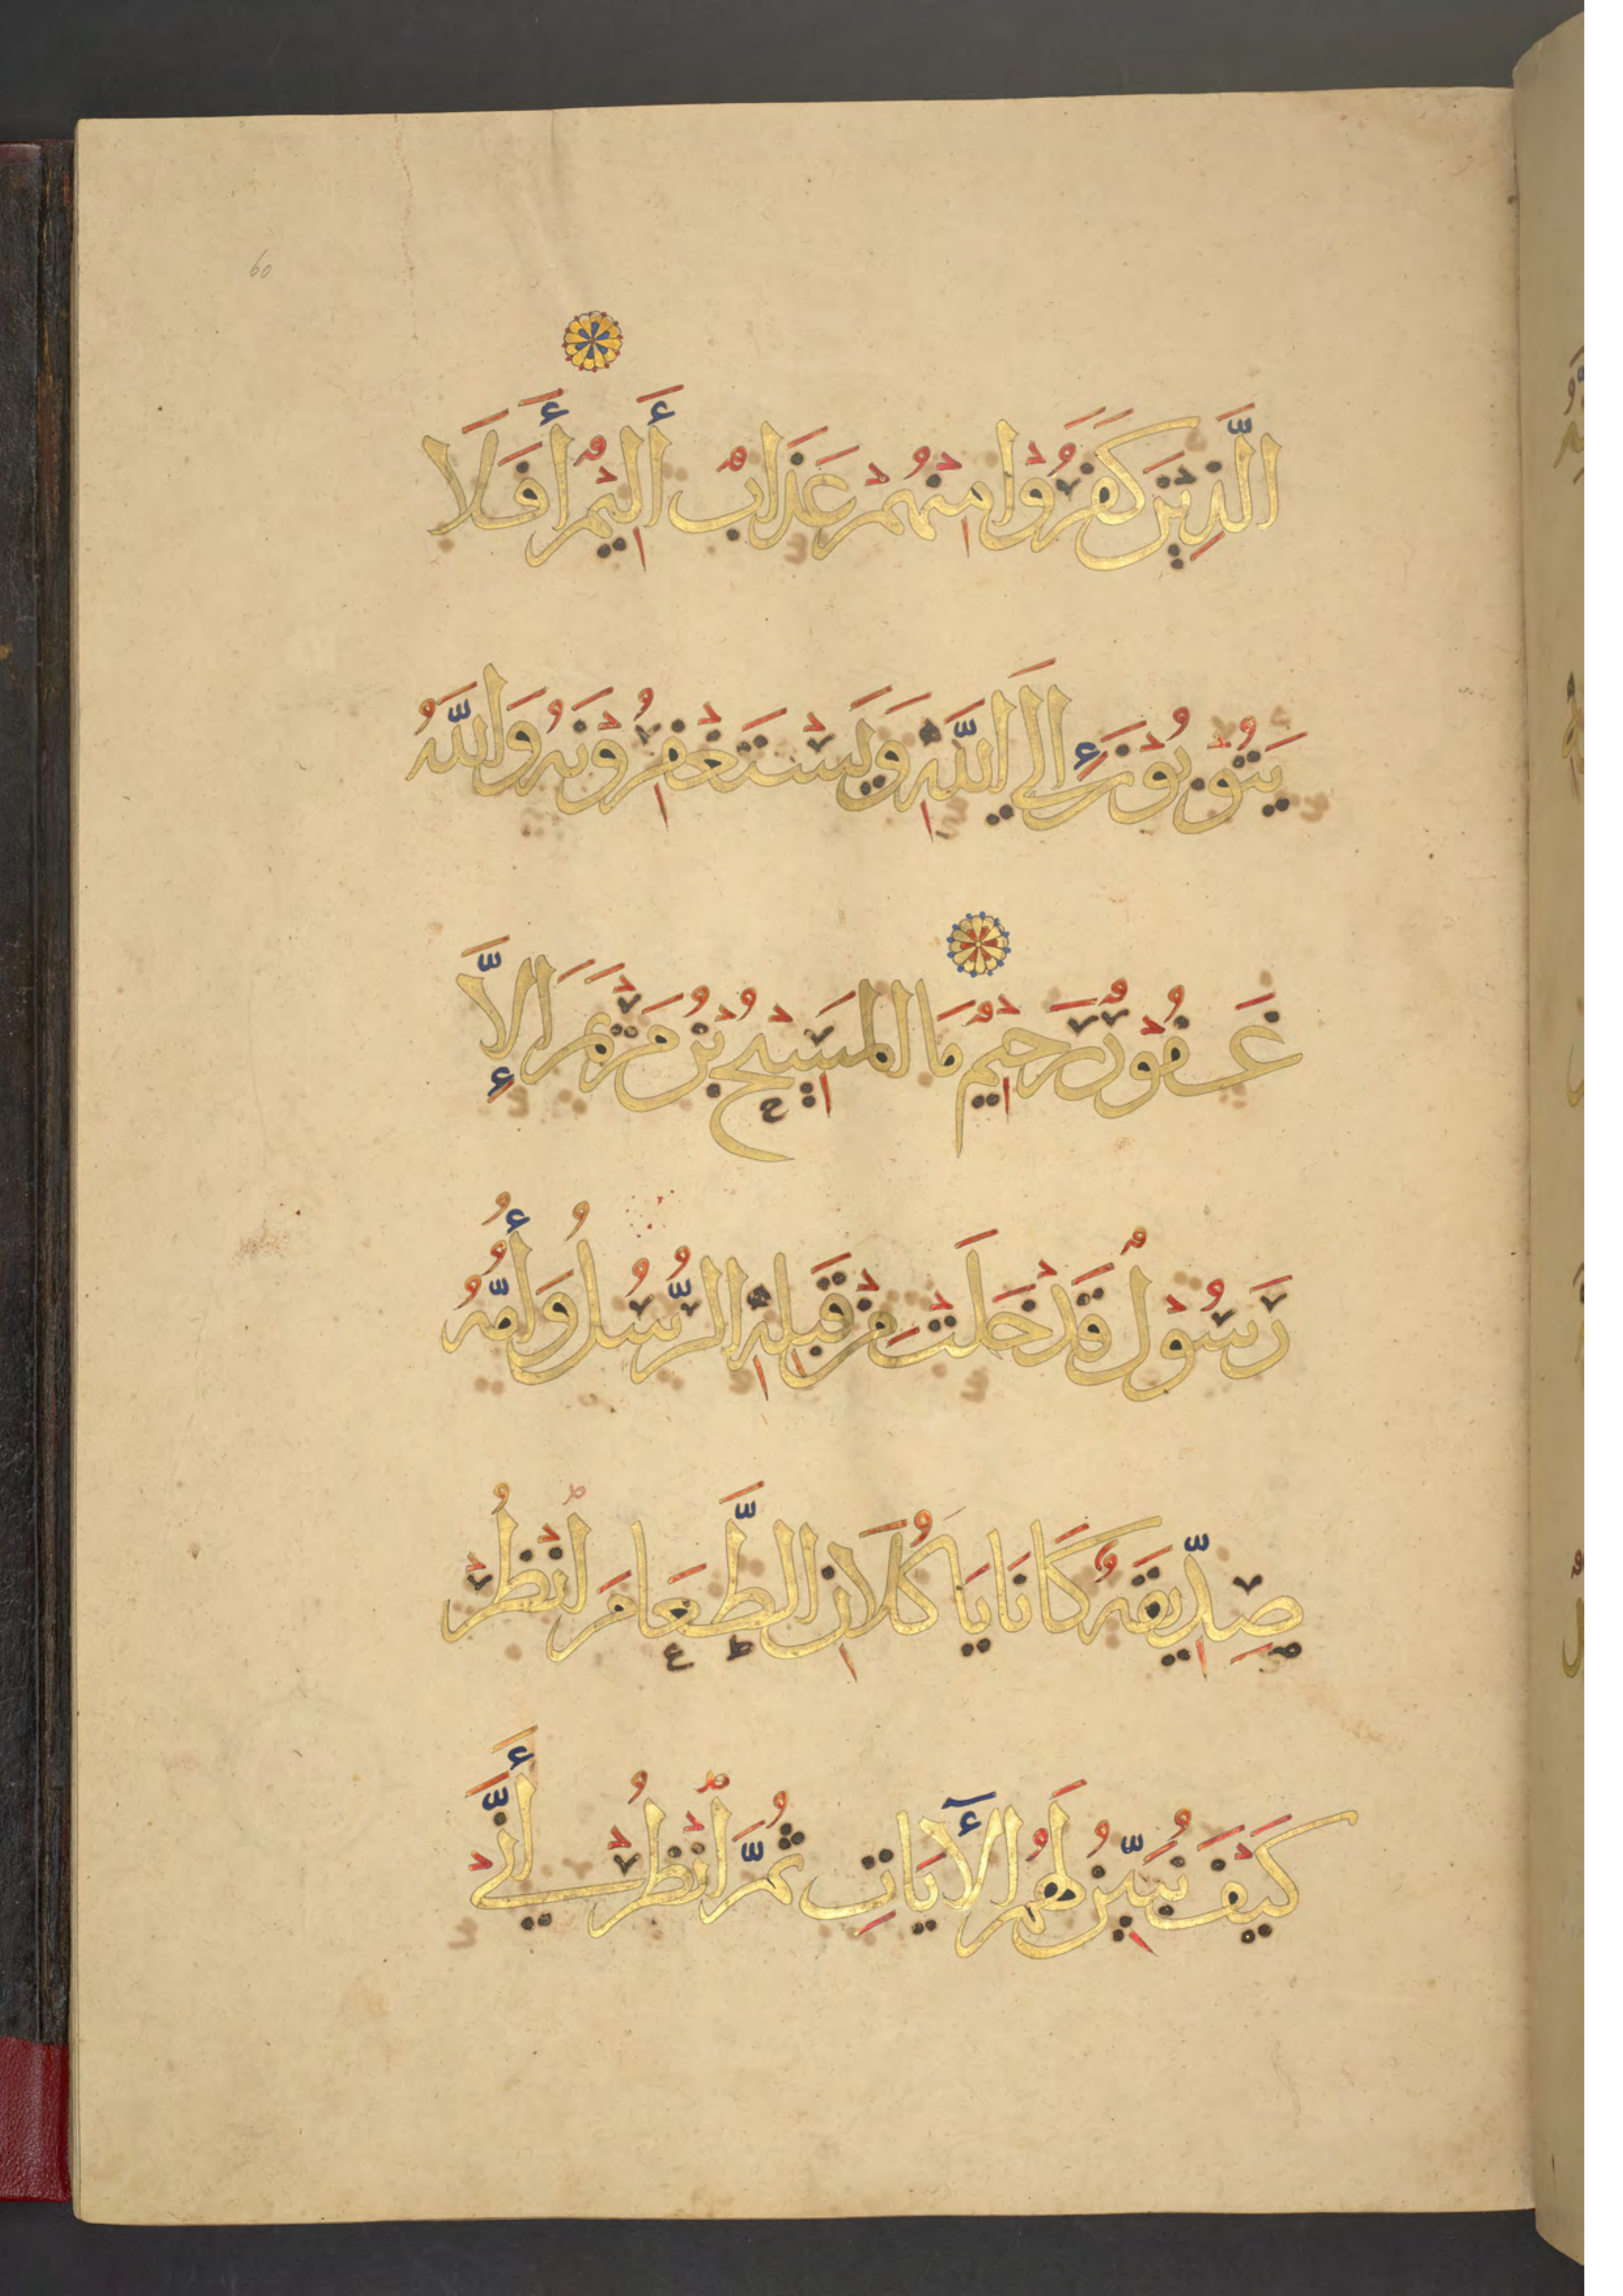 60
الَّذِيْنَ كَفَرُوْا مِنْهُمْ عَذَابٌ أَلِيْمٌ أَفَلَا
يَتُوْبُوْنَ إِلَى اللَّهِ وَيَسْتَغْفِرُوْنَهُ وَاللَّهُ
غَفُوْرٌ رَحِيْمٌ مَا الْمَسِيْحُ بْنُ مَرْيَمَ إِلَّا
رَسُوْلٌ قَدْ خَلَتْ مِنْ قَبْلِهِ الرُّسُلُ وَأُمُّهُ
صِدِّيْقَةٌ كَانَا يَاكُلَانِ الطَّعَامَ انْظُرْ
كَيْفَ نُبَيِّنُ لَهُمُ الْآيَاتِ ثُمَّ انْظُرْ أَنَّيْ